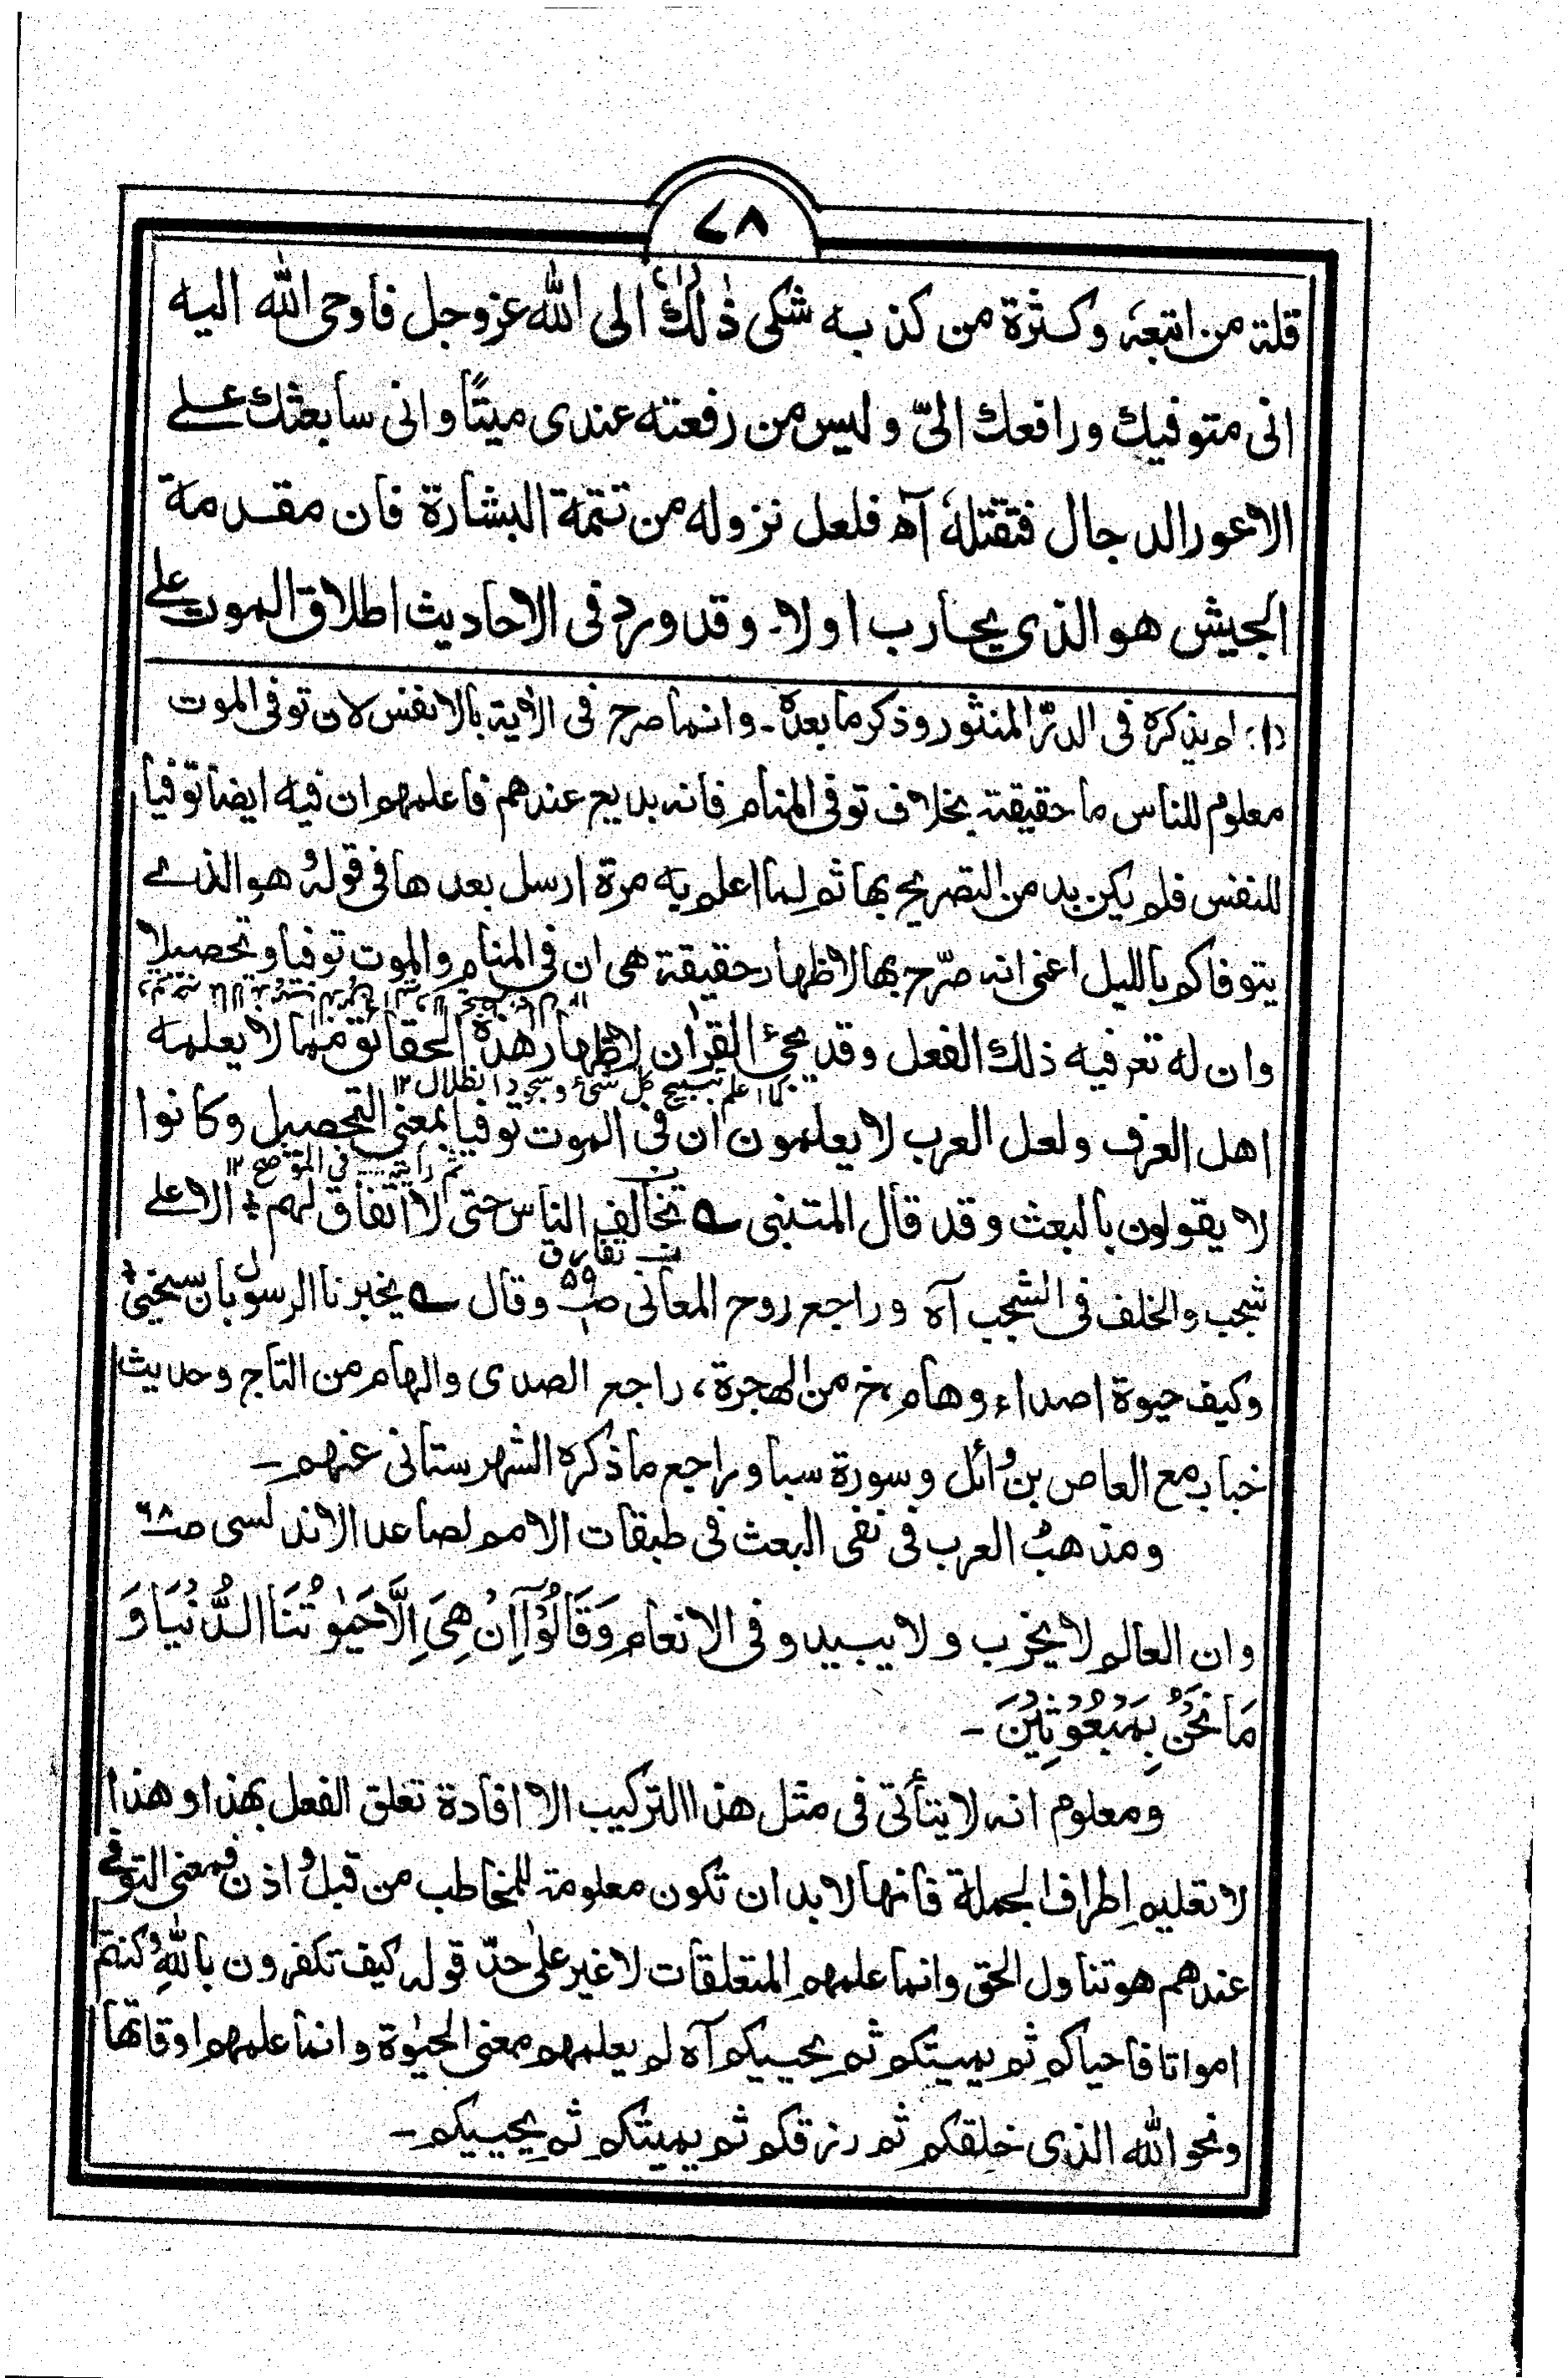 ٧٨
قلة من اتبعه وكثرة من كذب به شكى ذٰلك (١) الى الله عزوجل فاوحى الله اليه
انى متوفيك ورافعك الىّ وليس من رفعته عندى ميتًا وانى سابعثك على
الاعور الدجال فتقتلهٗ آه فلعل نزوله من تتمة البشارة فان مقدمة
الجيش هو الذى يحارب اولا۔ وقد ورد فى الاحاديث اطلاق الموت على
(١): لم يذكره فى الدرّ المنثور وذكر ما بعده۔ وانما صرح فى الاٰية بالانفس لان توفى الموت
معلوم للناس ما حقيقته بخلاف توفى المنام فانه بديع عندهم فاعلمهم ان فيه ايضا توفيا
للنفس فلم يكن بد من التصريح بها ثم لما اعلم به مرة ارسل بعدها فى قولهٖ وهو الذى
يتوفاكم بالليل اعنى انه صرّح بها لاظهار حقيقة هى ان فى المنام والموت توفيا وتحصيلا
وان له تعرفيه ذلك الفعل وقد يجئ القراٰن لاظهار هذه الحقائق مما لا يعلمه
كما اعلم تسبيح كل شئ وسجود الظلال ١٢
اهل العرف ولعل العرب لا يعلمون ان فى الموت توفيا بمعنى التحصيل وكانوا
ثم رأيته .... فى الموضح ١٢
لا يقولون بالبعث وقد قال المتنبى ؎ تخالف الناس حتى لا اتفاق لهم ÷ الا على
شجب والخلف فى الشجب آه وراجع روح المعانى ص ٥٩ وقال ؎ يخبرنا الرسول بان سنحيىٰ ÷
وكيف حيوة اصداء وهام، خ من الهجرة، راجع الصدى والهام من التاج وحديث
خباب مع العاص بن وائل وسورة سبا وراجع ما ذكره الشهرستانى عنهم۔
ومذهب العرب فى نفى البعث فى طبقات الامم لصاعد الاندلسى ص ٦٨
وان العالم لا يخرب ولا يبيد و فى الانعام وَقَالُوْٓا اِنْ هِىَ اِلَّا حَيٰوتُنَا الدُّنْيَا وَ
مَا نَحْنُ بِمَبْعُوْثِيْنَ۔
ومعلوم انه لا يتأتى فى مثل هذا التركيب الا افادة تعلق الفعل بهذا وهذا
لا تعليم اطراف الجملة فانها لا بد ان تكون معلومة للمخاطب من قبل و اذن فمعنى التوفى
عندهم هو تناول الحق وانما علمهم المتعلقات لا غير علىٰ حدّ قوله كيف تكفرون بالله وكنتم
امواتا فاحياكم ثم يميتكم ثم يحييكم آه لم يعلمهم معنى الحيٰوة وانما علمهم اوقاتها
ونحو الله الذى خلقكم ثم رزقكم ثم يميتكم ثم يحييكم۔